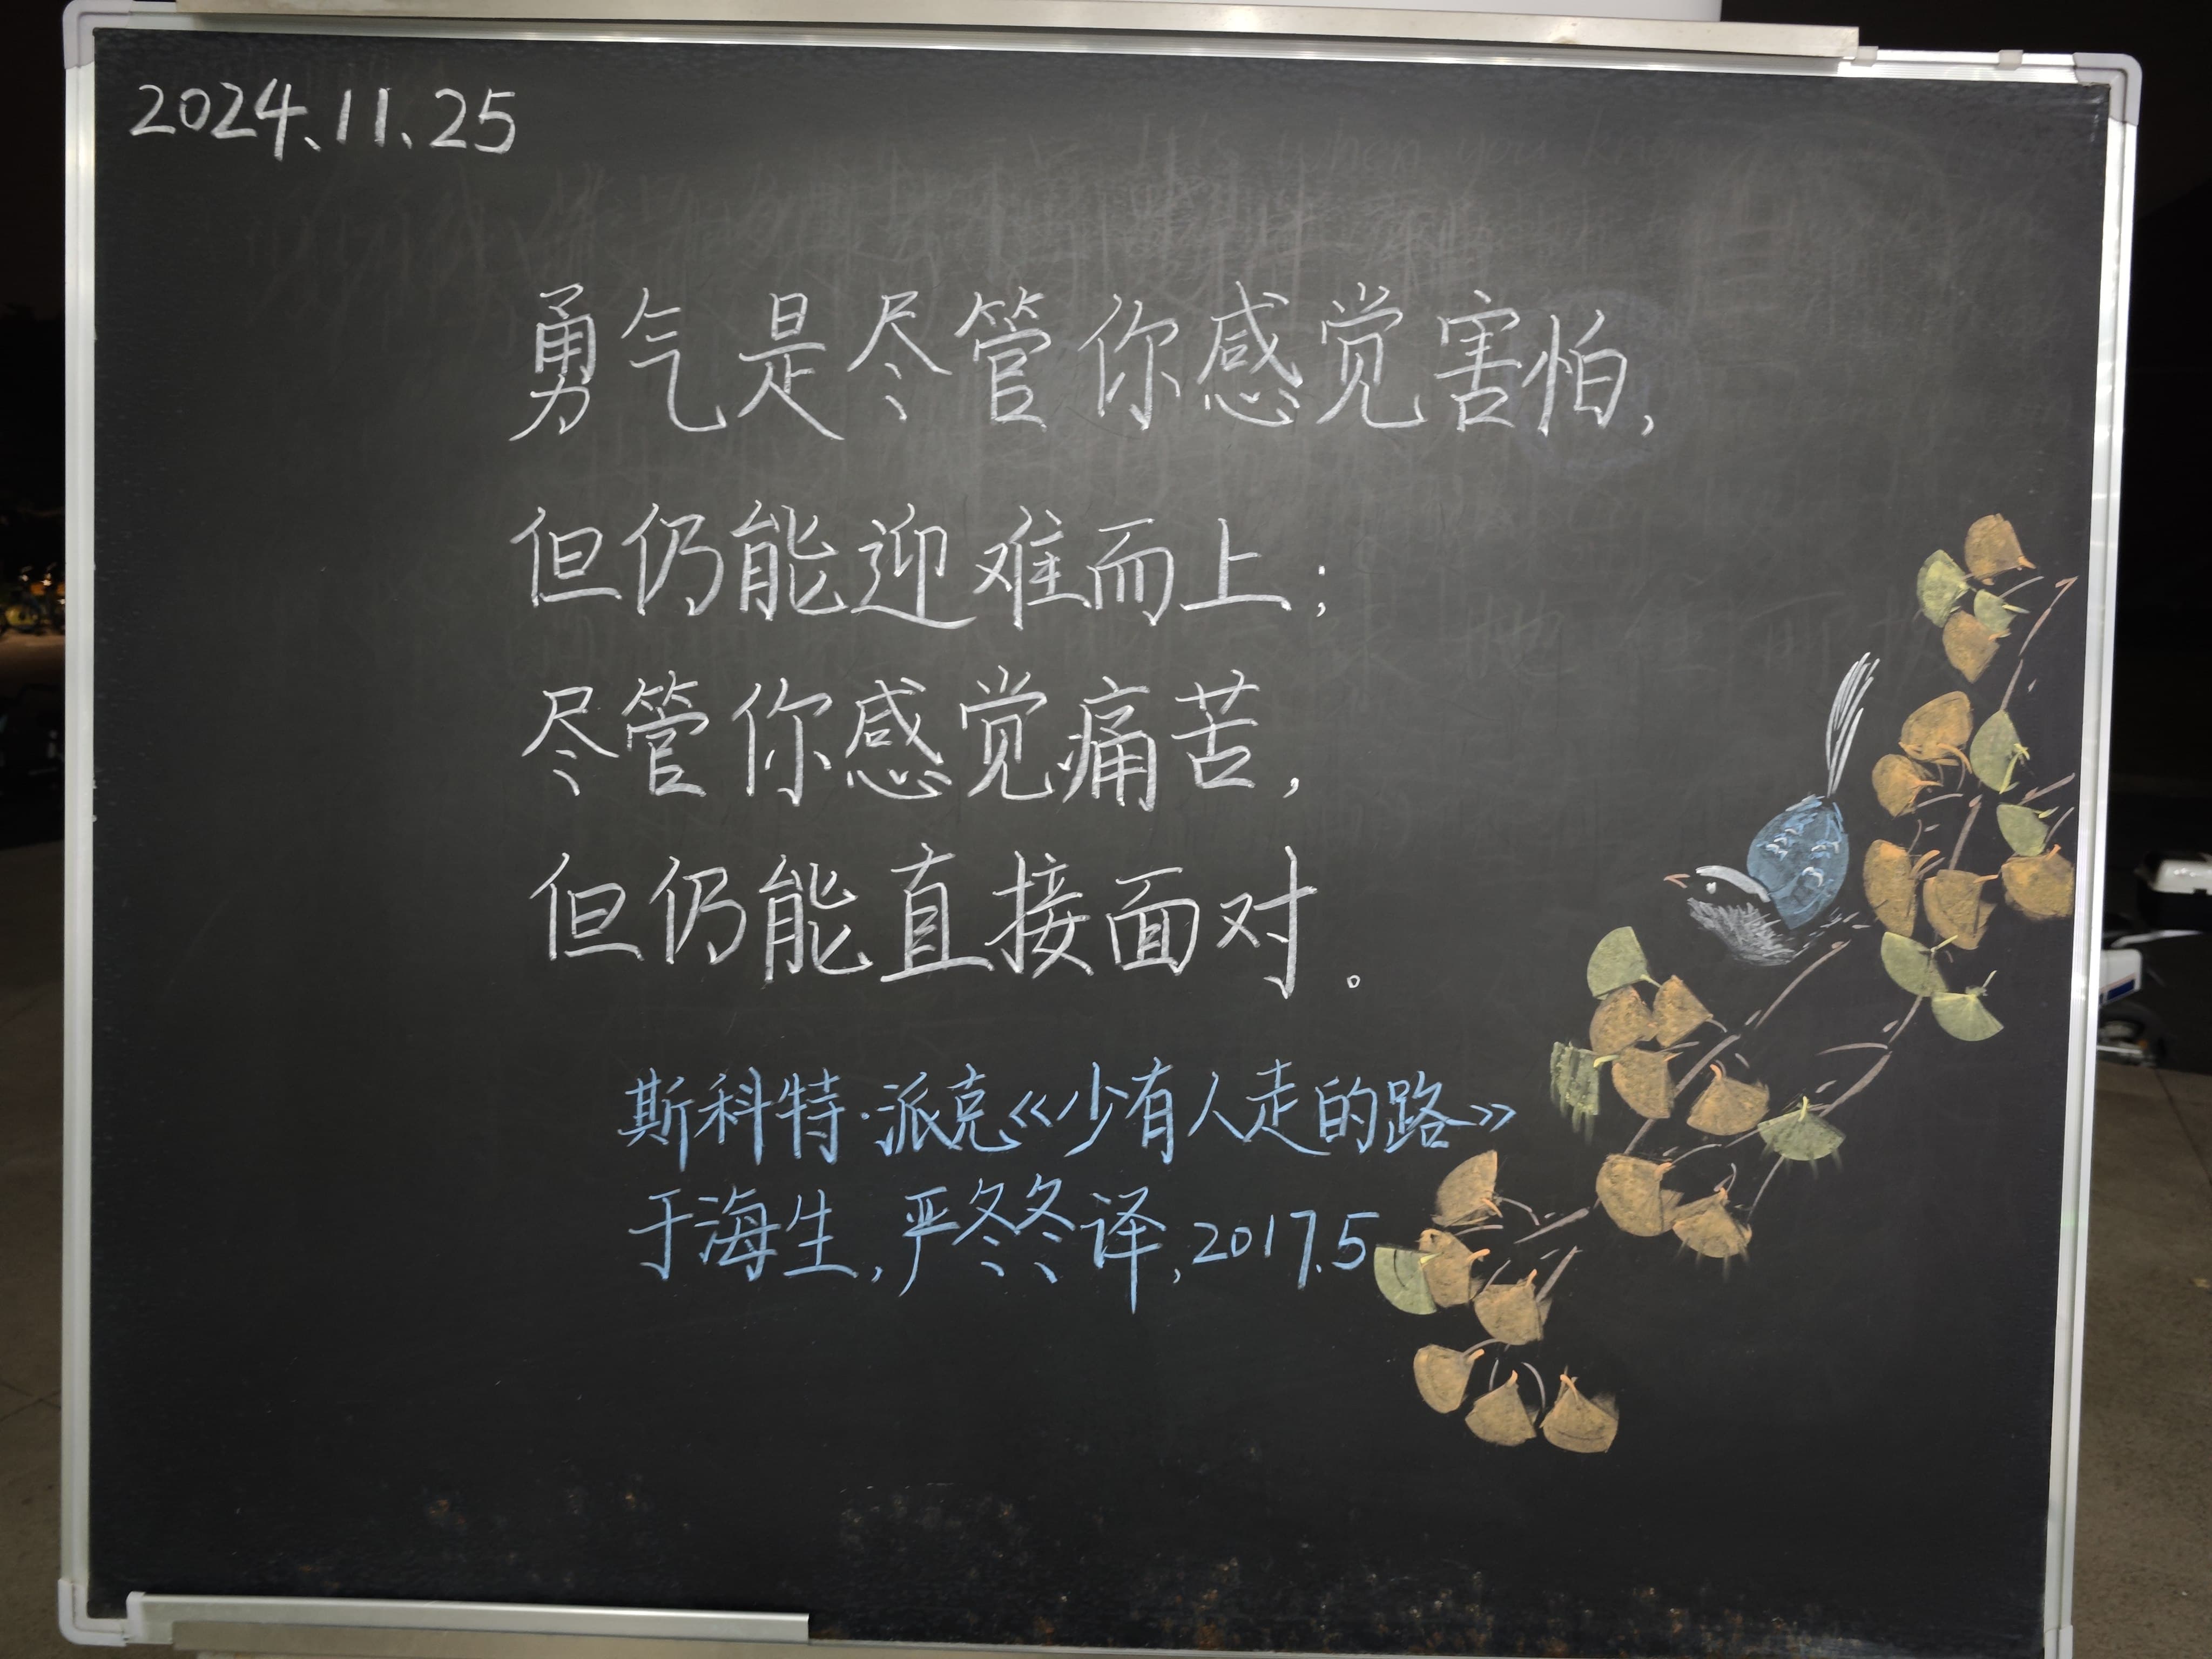 2024.11.25
勇气是尽管你感觉害怕，
但仍能迎难而上；
尽管你感觉痛苦，
但仍能直接面对。
斯科特·派克《少有人走的路》
于海生，严冬冬译，2017.5